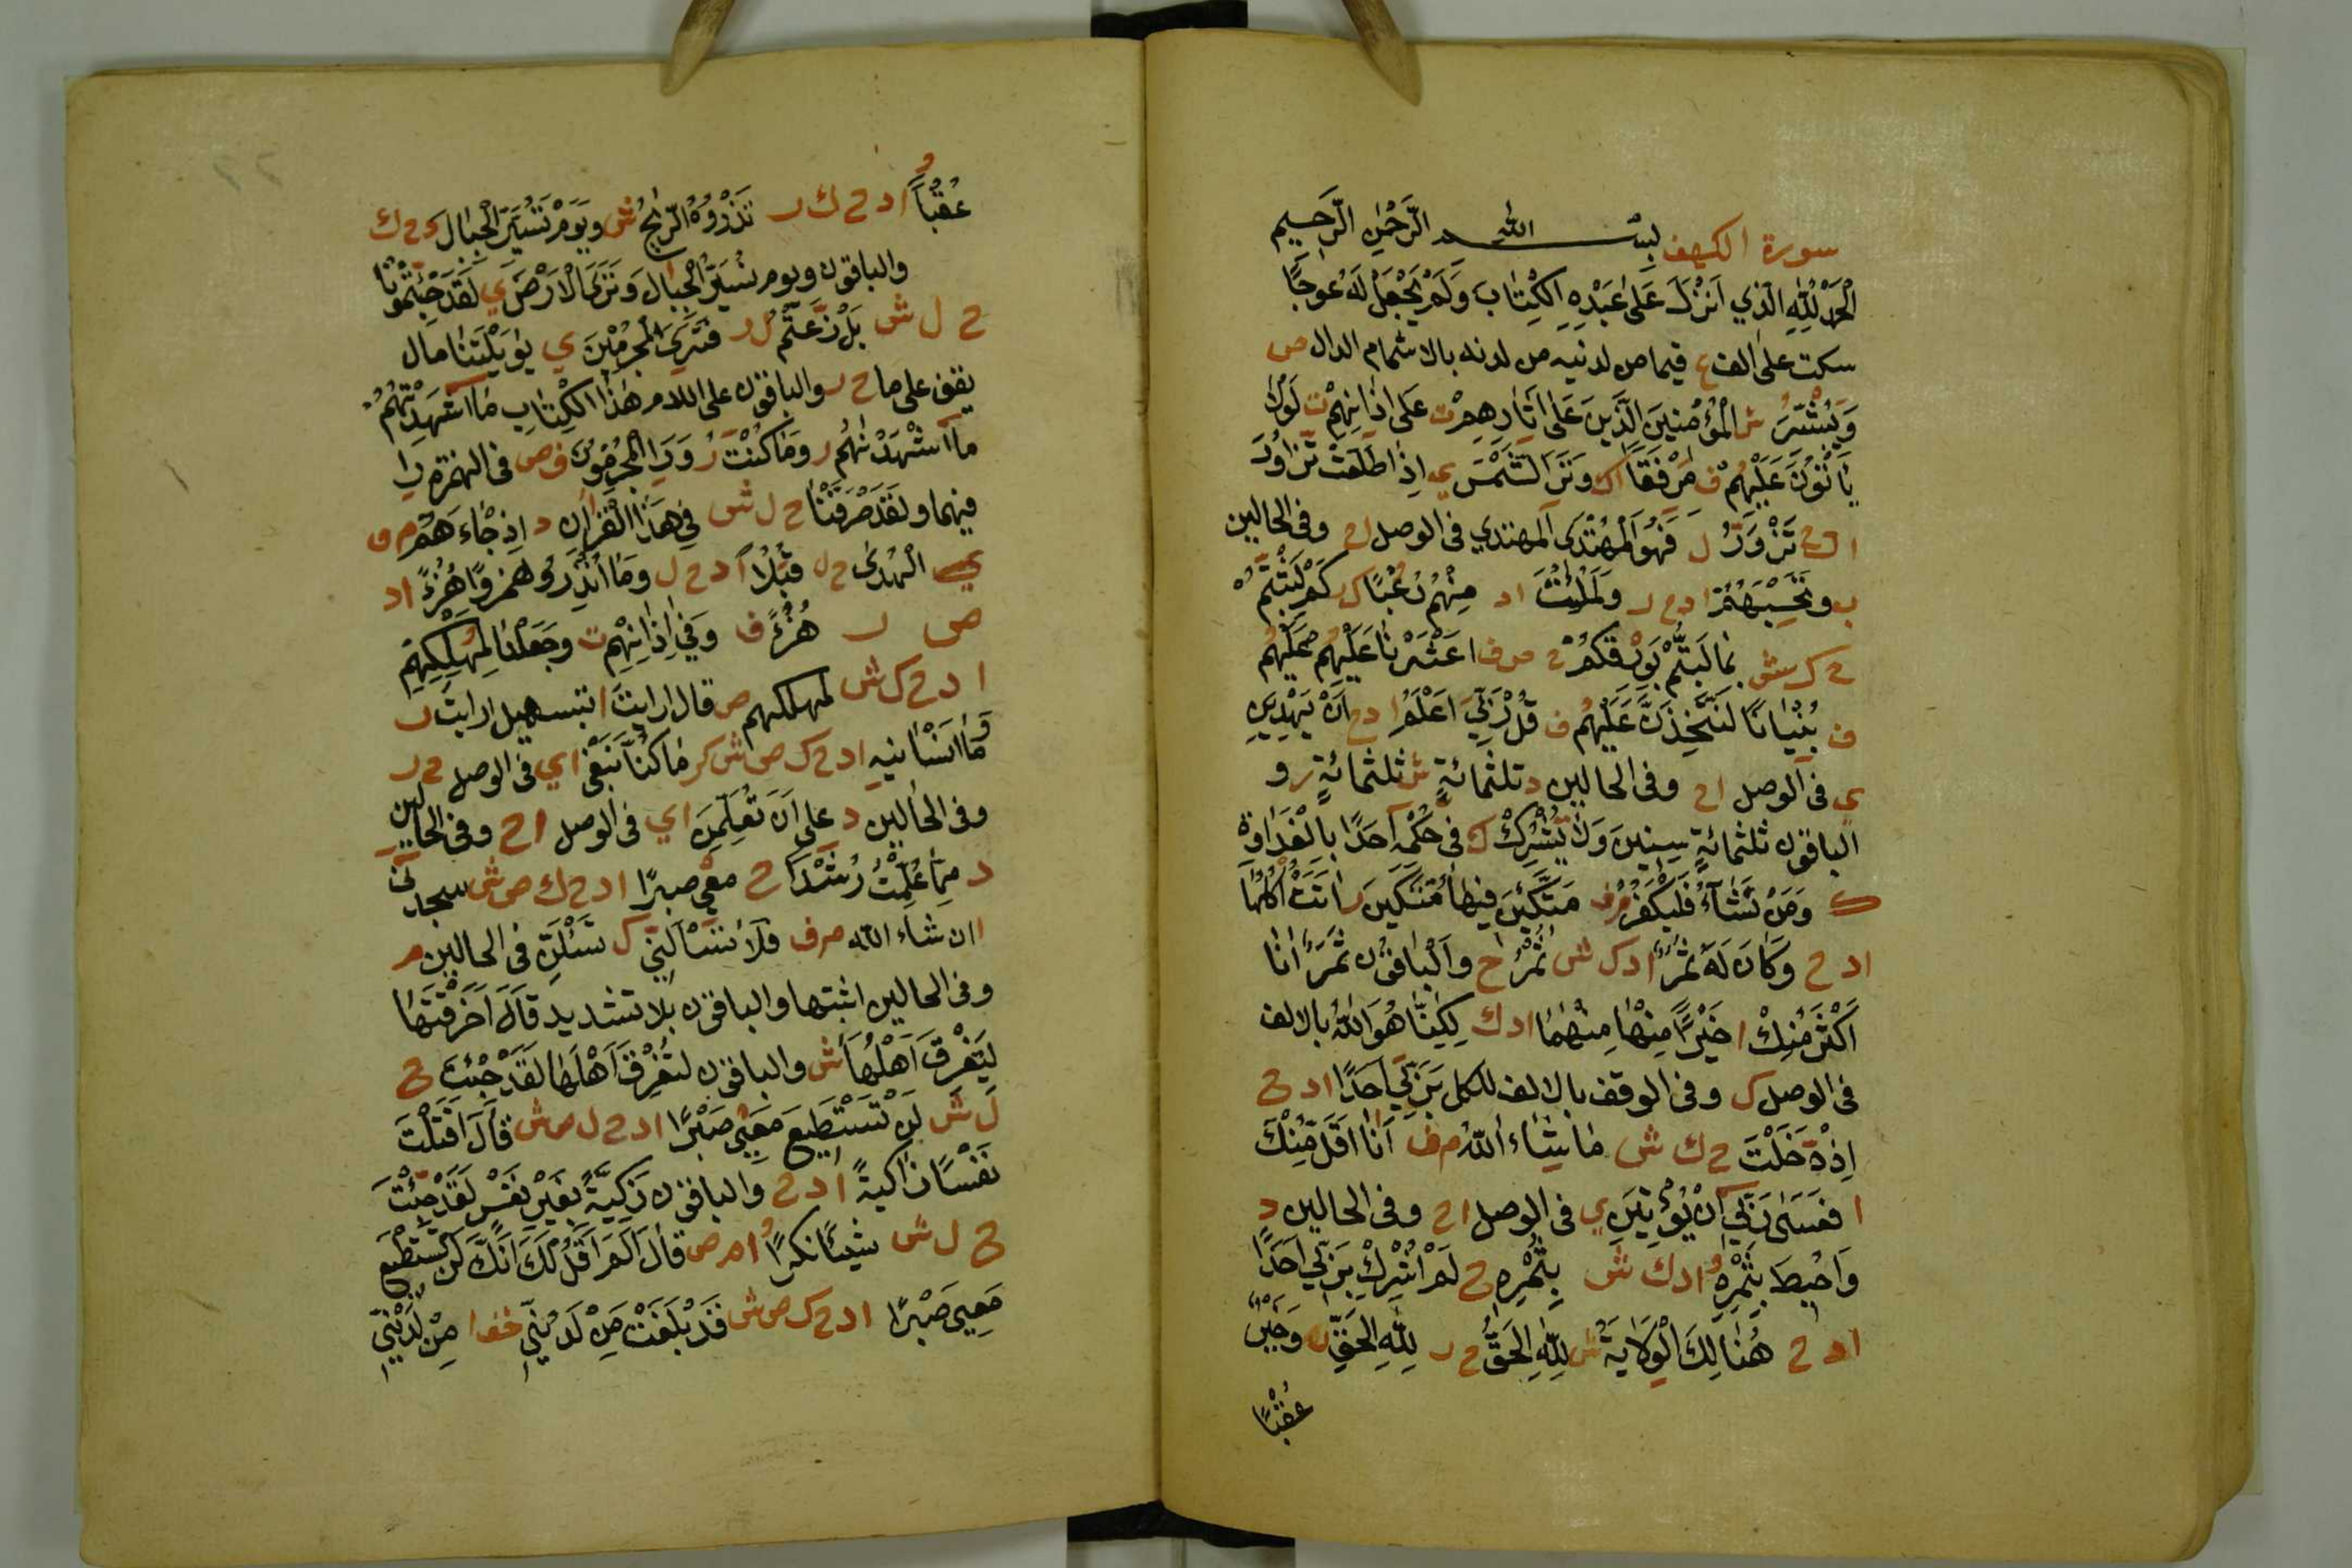 سورة الكهف بسم الله الرحمن الرحيم
الحمد لله الذي انزل على عبده الكتاب ولم يجعل له عوجا
سكت على الف ع قيما من لدنيه من لدنه بالاشمام الدال ص
ويبشر ش المؤمنين الذين على اثارهم ت على اذانهم ت لولا
ياتون عليهم ف مرفقا اك وترى الشمس ي اذا طلعت تزاور
ا د ح تزور ل فهو المهتدى المهتدي في الوصل ا ح وفي الحالين
ب وتحسبهم ا د ح ر ولملئت ا د منهم رعبا ك ر كم لبثتم
ح ك ش بما لبثتم بورقكم ح ص ف اعثرنا عليهم عليهم
ف بنيانا لنتخذن عليهم ف قل ربي اعلم ا د ح ان يهدين
ي في الوصل ا ح وفي الحالين د ثلثمائة ش ثلثمائة ر و
الباقون ثلثمائة سنين ولا تشرك ك في حكمه احدا بالغداوة
ك ومن شاء فليكفر م ف متكئين فيها متكين اتت اكلها
ا د ح وكان له ثمر ا د ك ش ثمر ح والباقون ثمر انا
اكثر منك ا خيرا منها منهما ا د ك لكنا هو الله بالالف
في الوصل ك وفي الوقف بالالف للكل بربي احدا ا د ح
اذ دخلت ح ك ش ما شاء الله م ف انا اقل منك
ا فعسى ربي ان يؤتين ي في الوصل ا ح وفي الحالين د
واحيط بثمره ا د ك ش بثمره ح لم اشرك بربي احدا
ا د ح هنالك الولاية ش لله الحق ح ر لله الحق ن وخير
عقبا
عقبا ا د ح ك ر تذروه الريح ش ويوم تسير الجبال د ح ك
والباقون ويوم نسير الجبال وترى الارض ي لقد جئتمونا
ح ل ش بل زعمتم ل ر فترى المجرمين ي يويلتنا مال
يقف على ما ح ر والباقون على اللام هذا الكتاب ما اشهدتهم
ما اشهدناهم ر وما كنت ر ورا المجرمون ف ص في الهمزة را
فيهما ولقد صرفنا ح ل ش في هذا القران د اذ جاءهم م ف
الهدى ح ل قبلا ا د ح ل وما انذروا هزوا هزءا ا د
ص ر هزءا ف وفي اذانهم ت وجعلنا لمهلكهم
ا د ح ك ش لمهلكهم ص قال ارايت ا بتسهيل ارايت ر
وما انسانيه ا د ح ك ص ش كر ما كنا نبغ اي في الوصل ح ر
وفي الحالين د على ان تعلمن اي في الوصل ا ح وفي الحالين
د مما علمت رشدا ح معي صبرا ا د ح ك ص ش ستجدني
ا ان شاء الله م ف فلا تسالني ك تسئلن في الحالين م
وفي الحالين اثبتها والباقون بلا تشديد قال اخرقتها
ليغرق اهلها ش والباقون لتغرق اهلها لقد جئت ح
ل ش لن تستطيع معي صبرا ا د ح ل ص ش قال اقتلت
نفسا زاكية ا د ح والباقون زكية بغير نفس لقد جئت
ح ل ش شيئا نكرا ا م ص قال الم اقل لك انك لن تستطيع
معي صبرا ا د ح ك ص ش قد بلغت من لدني خفا من لدني